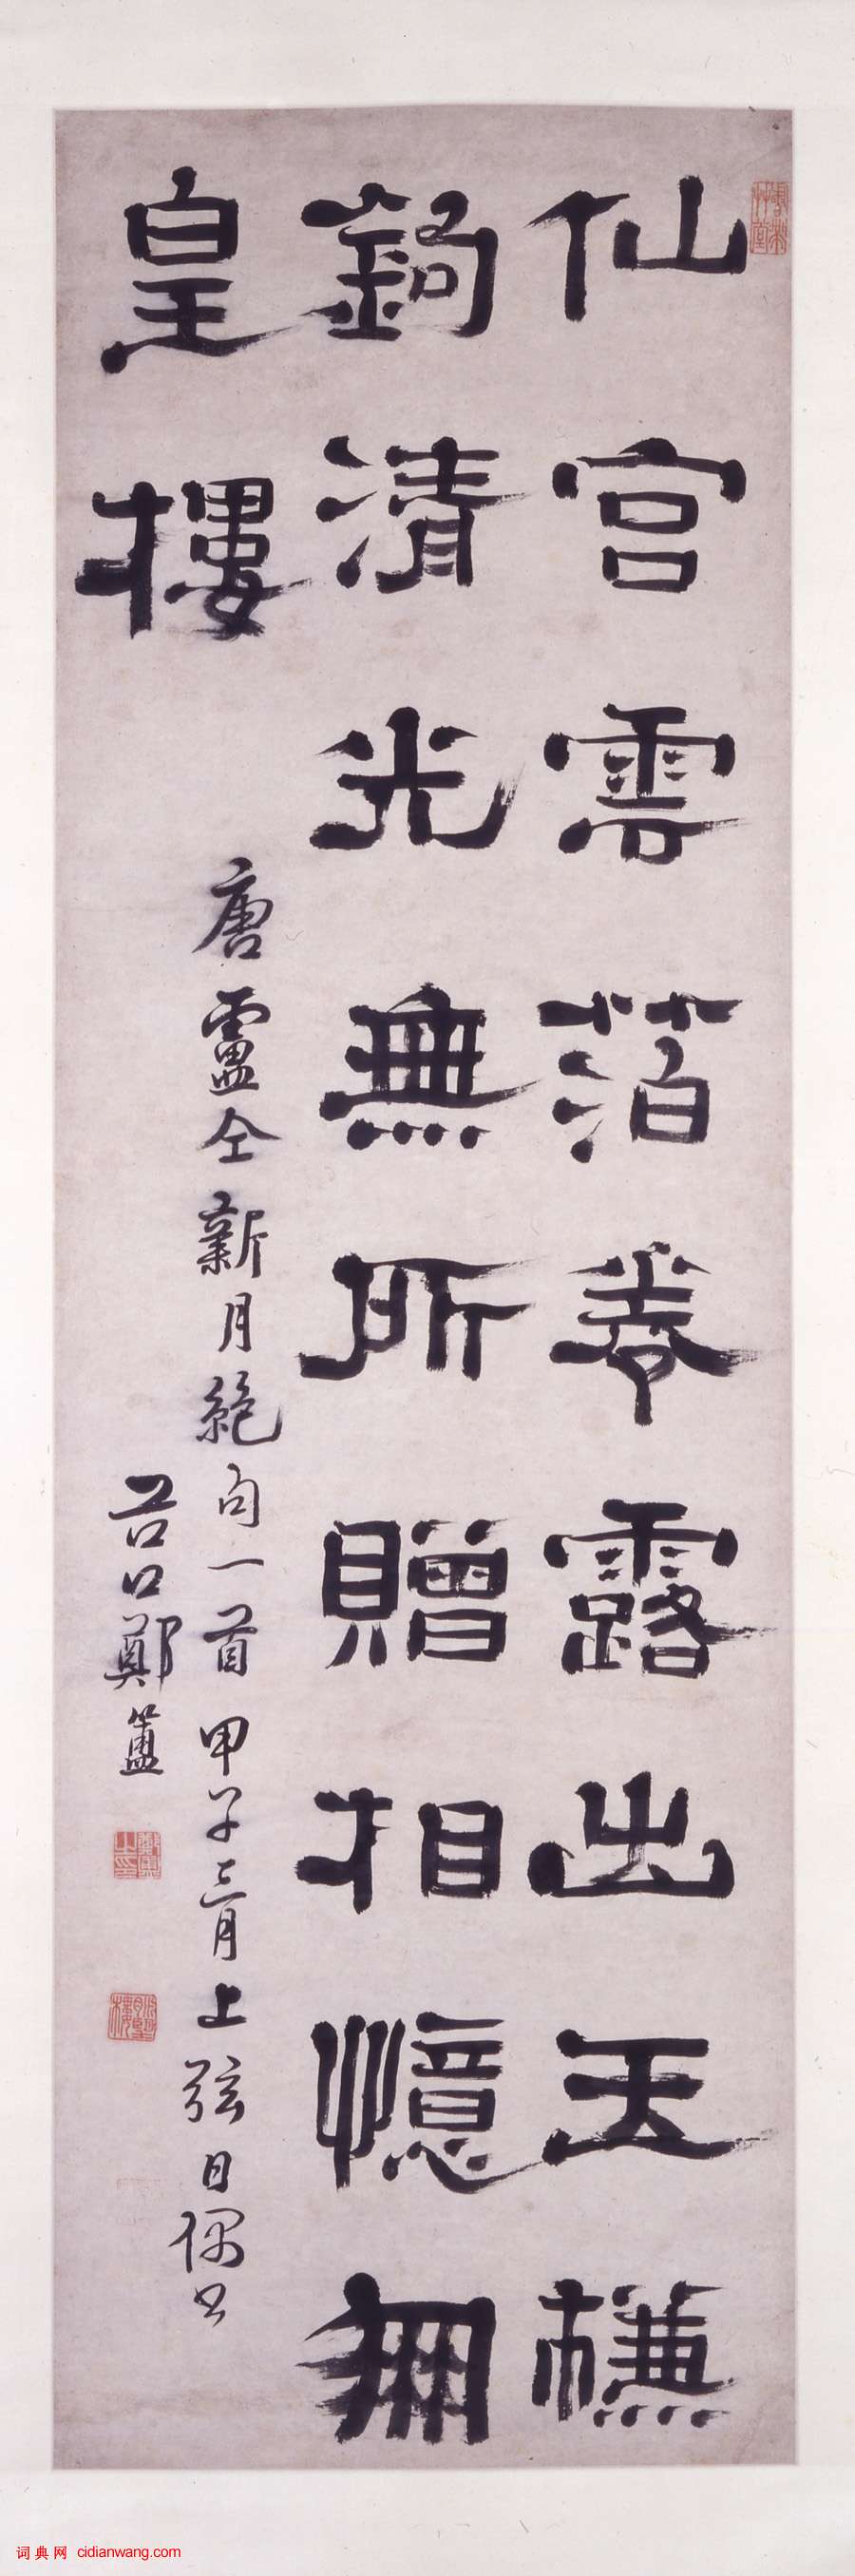 仙宮雲萡卷露出玉槏
鉤清光無所贈相憶朋
皇樓
唐盧仝新月絕句一首甲子三月上弦日偶書
谷口鄭簠
鄭簠之印
词典网 cidianwang.com